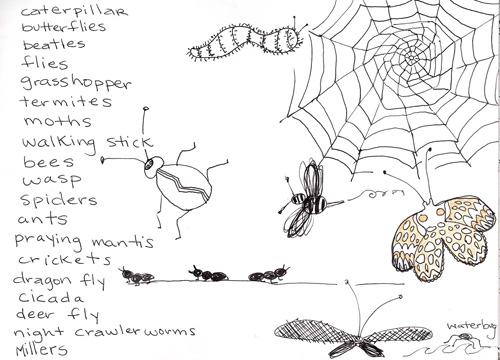 caterpillar
butterflies
beatles
flies
grasshopper
termites
moths
walking stick
bees
wasp
spiders
ants
praying mantis
crickets
dragon fly
cicada
deer fly
night crawler worms
Millers
waterbug